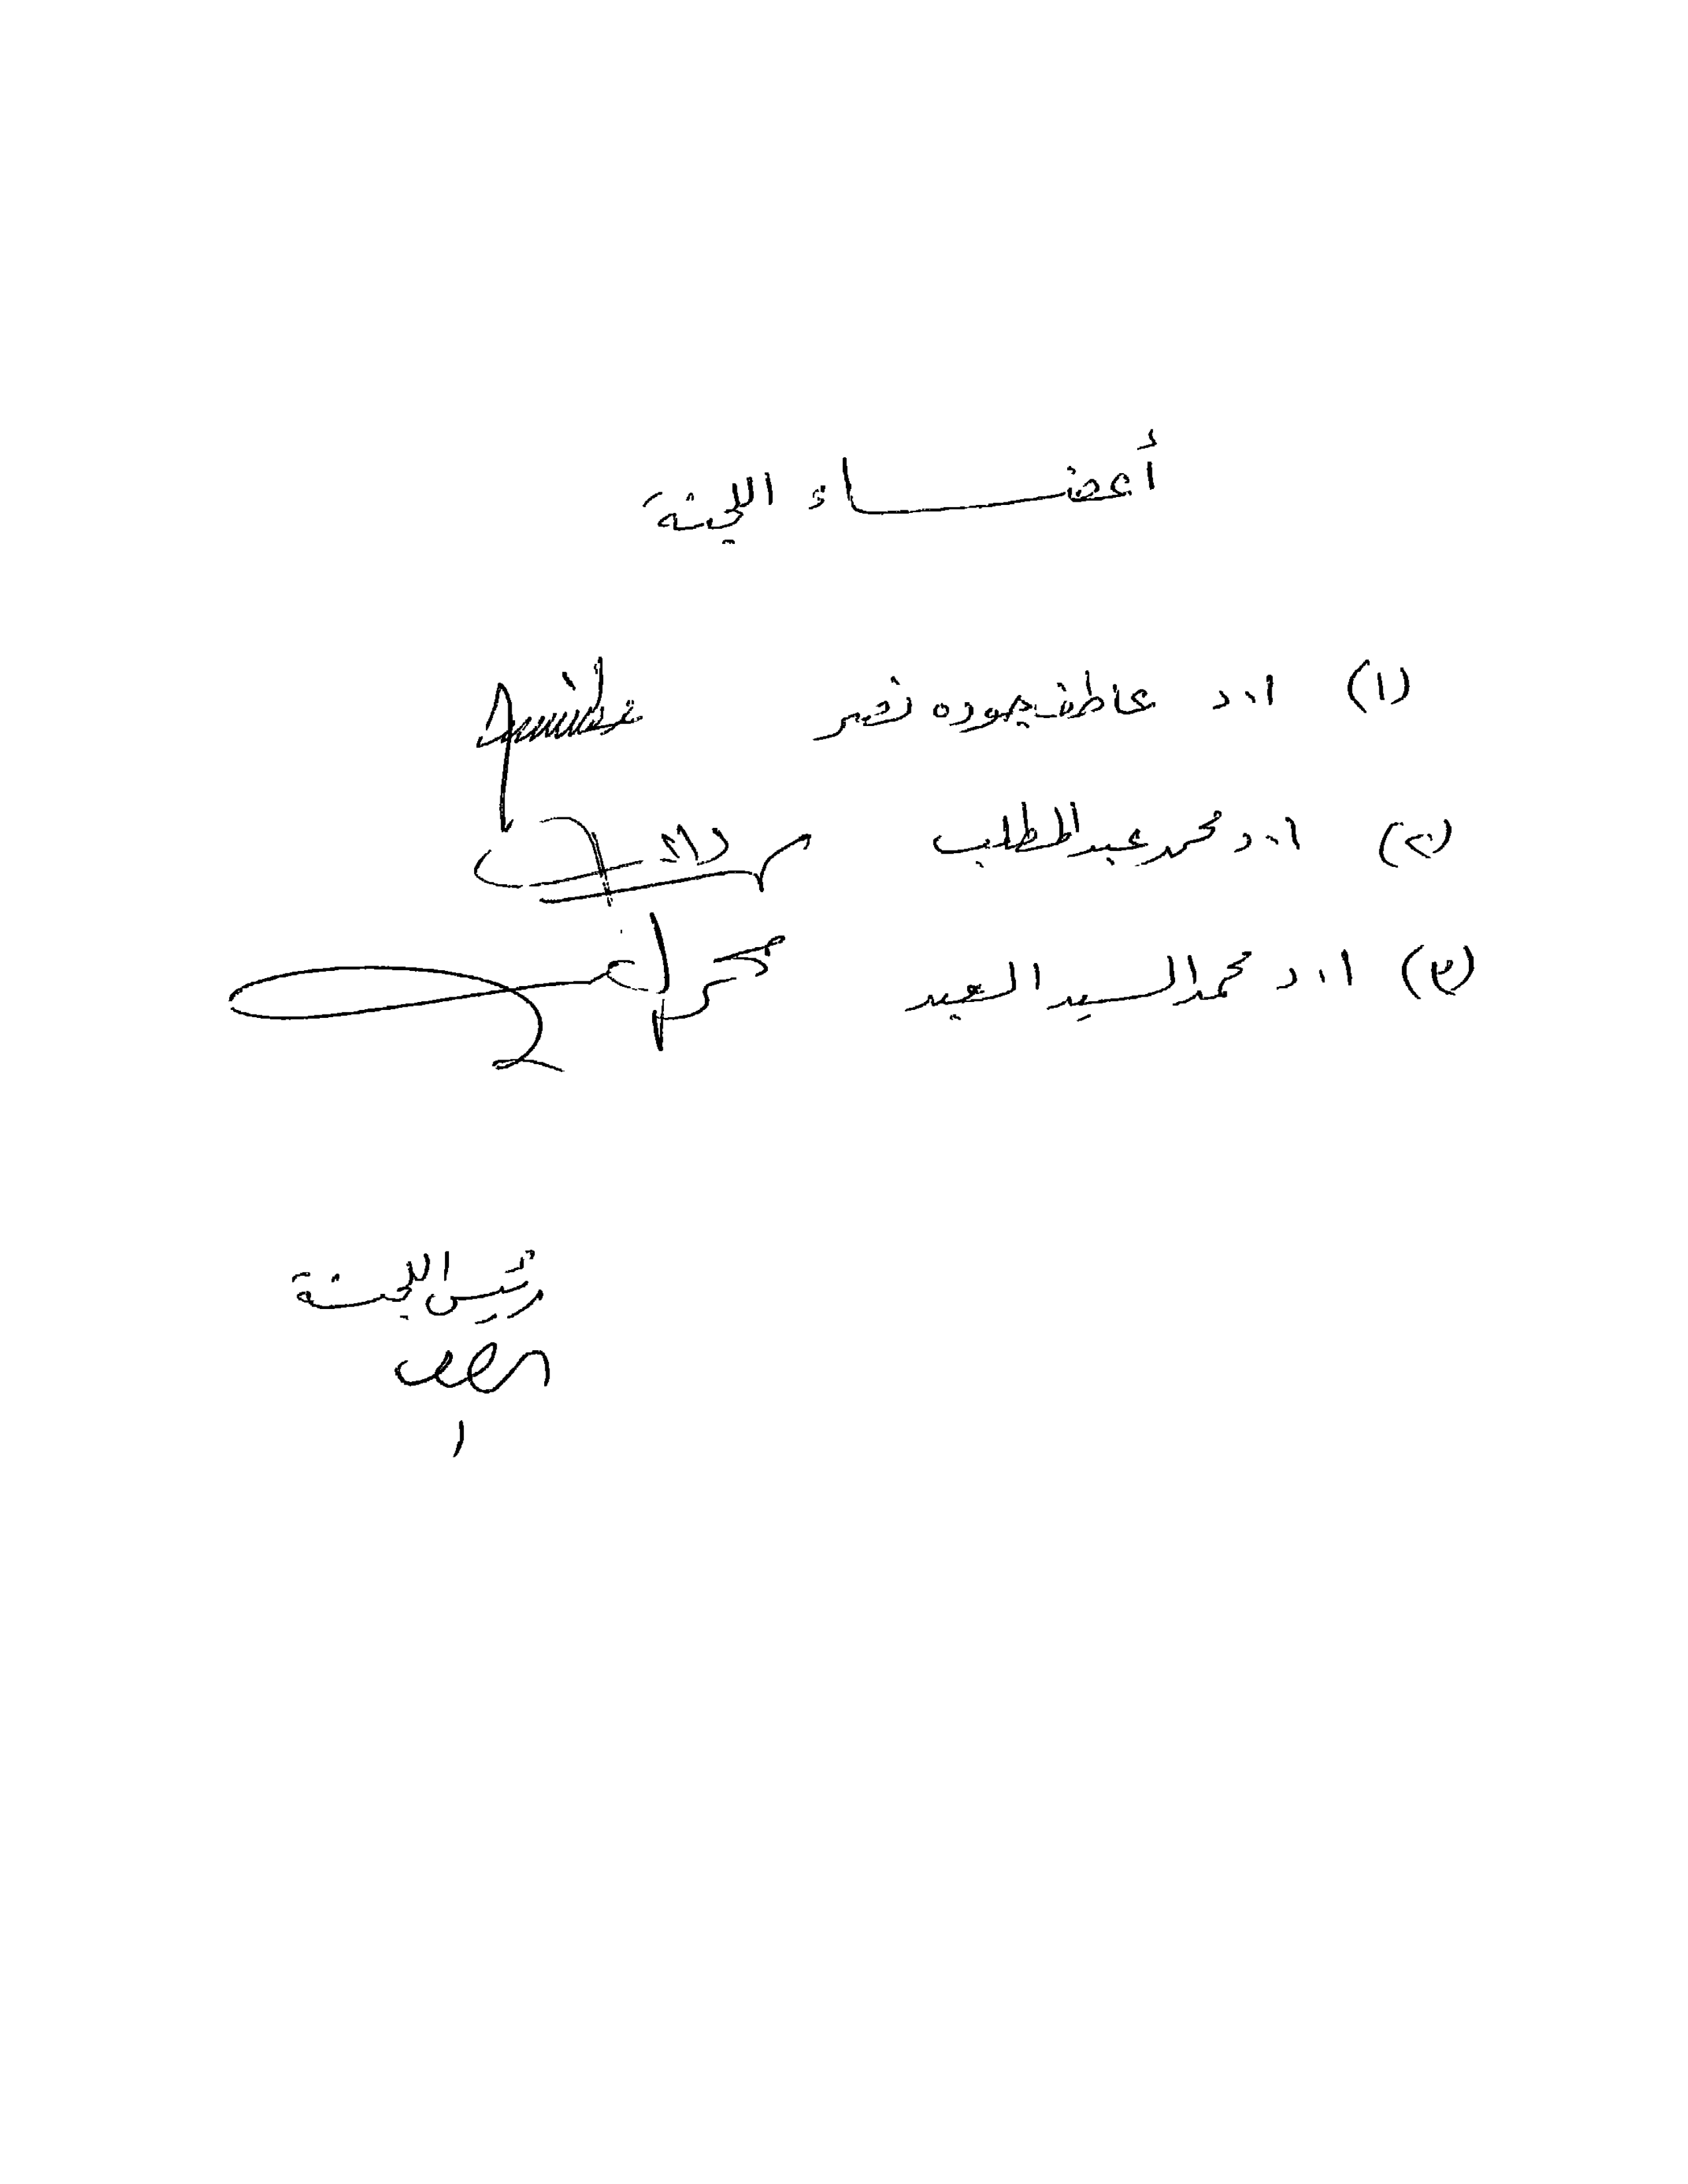 أعضاء اللجنة
(١) ا.د عاطف جوده نصر
(٢) ا.د محمد عبد المطلب
(٣) ا.د محمد السيد العيد
رئيس اللجنة